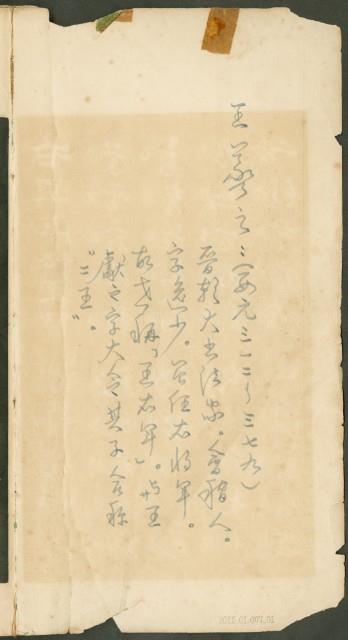 王羲之（公元三一二～三七九）
晉朝大书法家。會稽人。
字逸少。曾任右将军。
故世稱「王右军」。与王
獻之字大令其子合称
“二王”。
2012.01.007.01